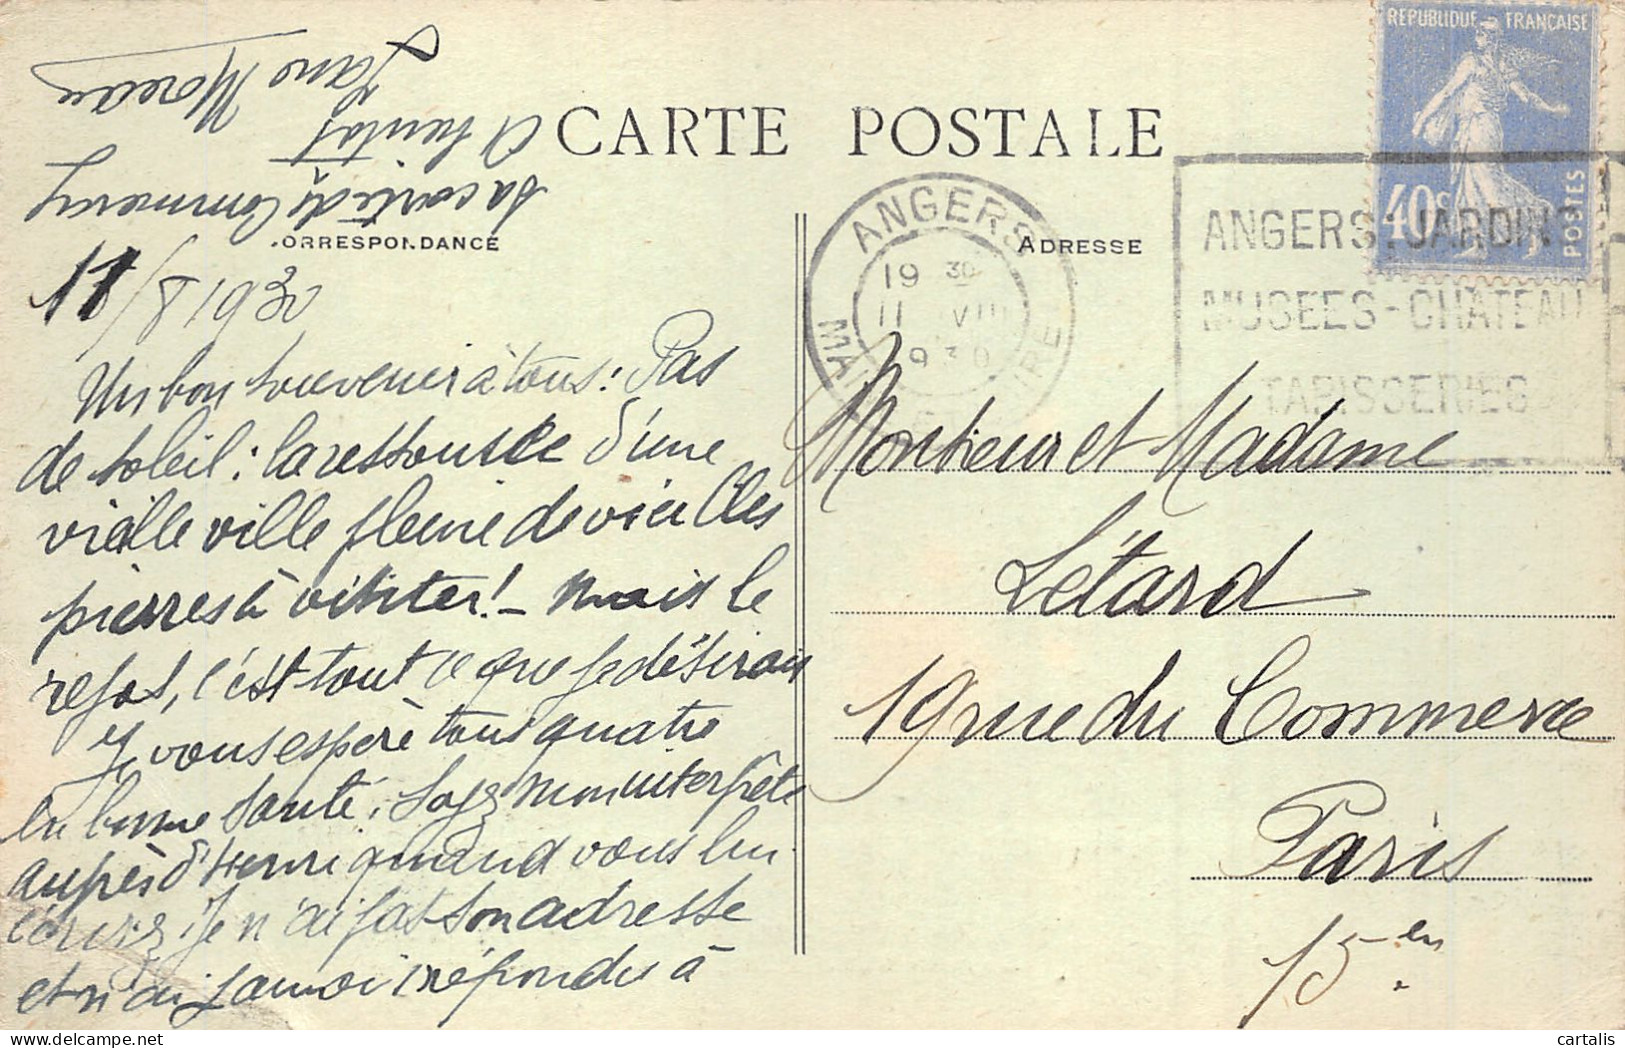 CARTE POSTALE
CORRESPONDANCE
ADRESSE
REPUBLIQUE FRANÇAISE
40c
POSTES
ANGERS
MAINE ET LOIRE
19 30
11 VIII
1930
ANGERS: JARDINS
MUSEES - CHATEAU
TAPISSERIES
11/8 1930
Un bon souvenir à tous: Pas
de soleil: la ressource d'une
vieille ville pleine de vieilles
pierres à visiter! - mais le
repos, c'est tout ce que je désirais
J vous espère tous quatre
en bonne santé. Soyez mon interprète
auprès d'Henri quand vous lui
écrivez; je n'ai pas son adresse
et n'ai jamais répondu à
sa carte de Commercy
A bientôt
Jane Moreau
Monsieur et Madame
Létard
19 rue du Commerce
Paris
15en
cartalis